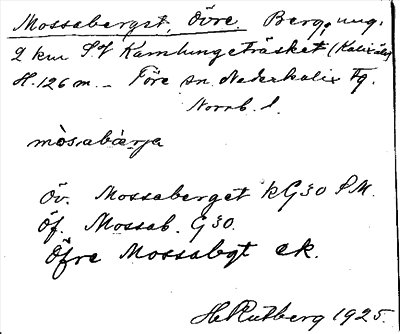 Mossaberget, Övre. Berg, ung.
2 km SV Kamlungeträsket (Kalix älv)
H. 126 m. – Töre sn. Nederkalix Tg.
Norrb. l.
mòsabær̀ja
Öv. Mossaberget kG30 SM.
Öf. Mossab. G30.
Öfre Mossabgt ek.
H. Rutberg 1925.